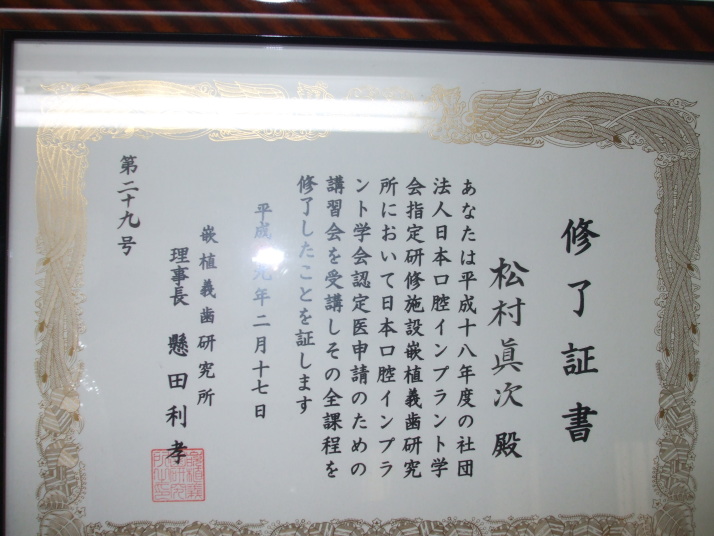 修了証書
松村眞次殿
あなたは平成十八年度の社団
法人日本口腔インプラント学
会指定研修施設嵌植義歯研究
所において日本口腔インプラ
ント学会認定医申請のための
講習会を受講しその全課程を
修了したことを証します
平成 九年二月十七日
嵌植義歯研究所
理事長 懸田利孝
第二十九号